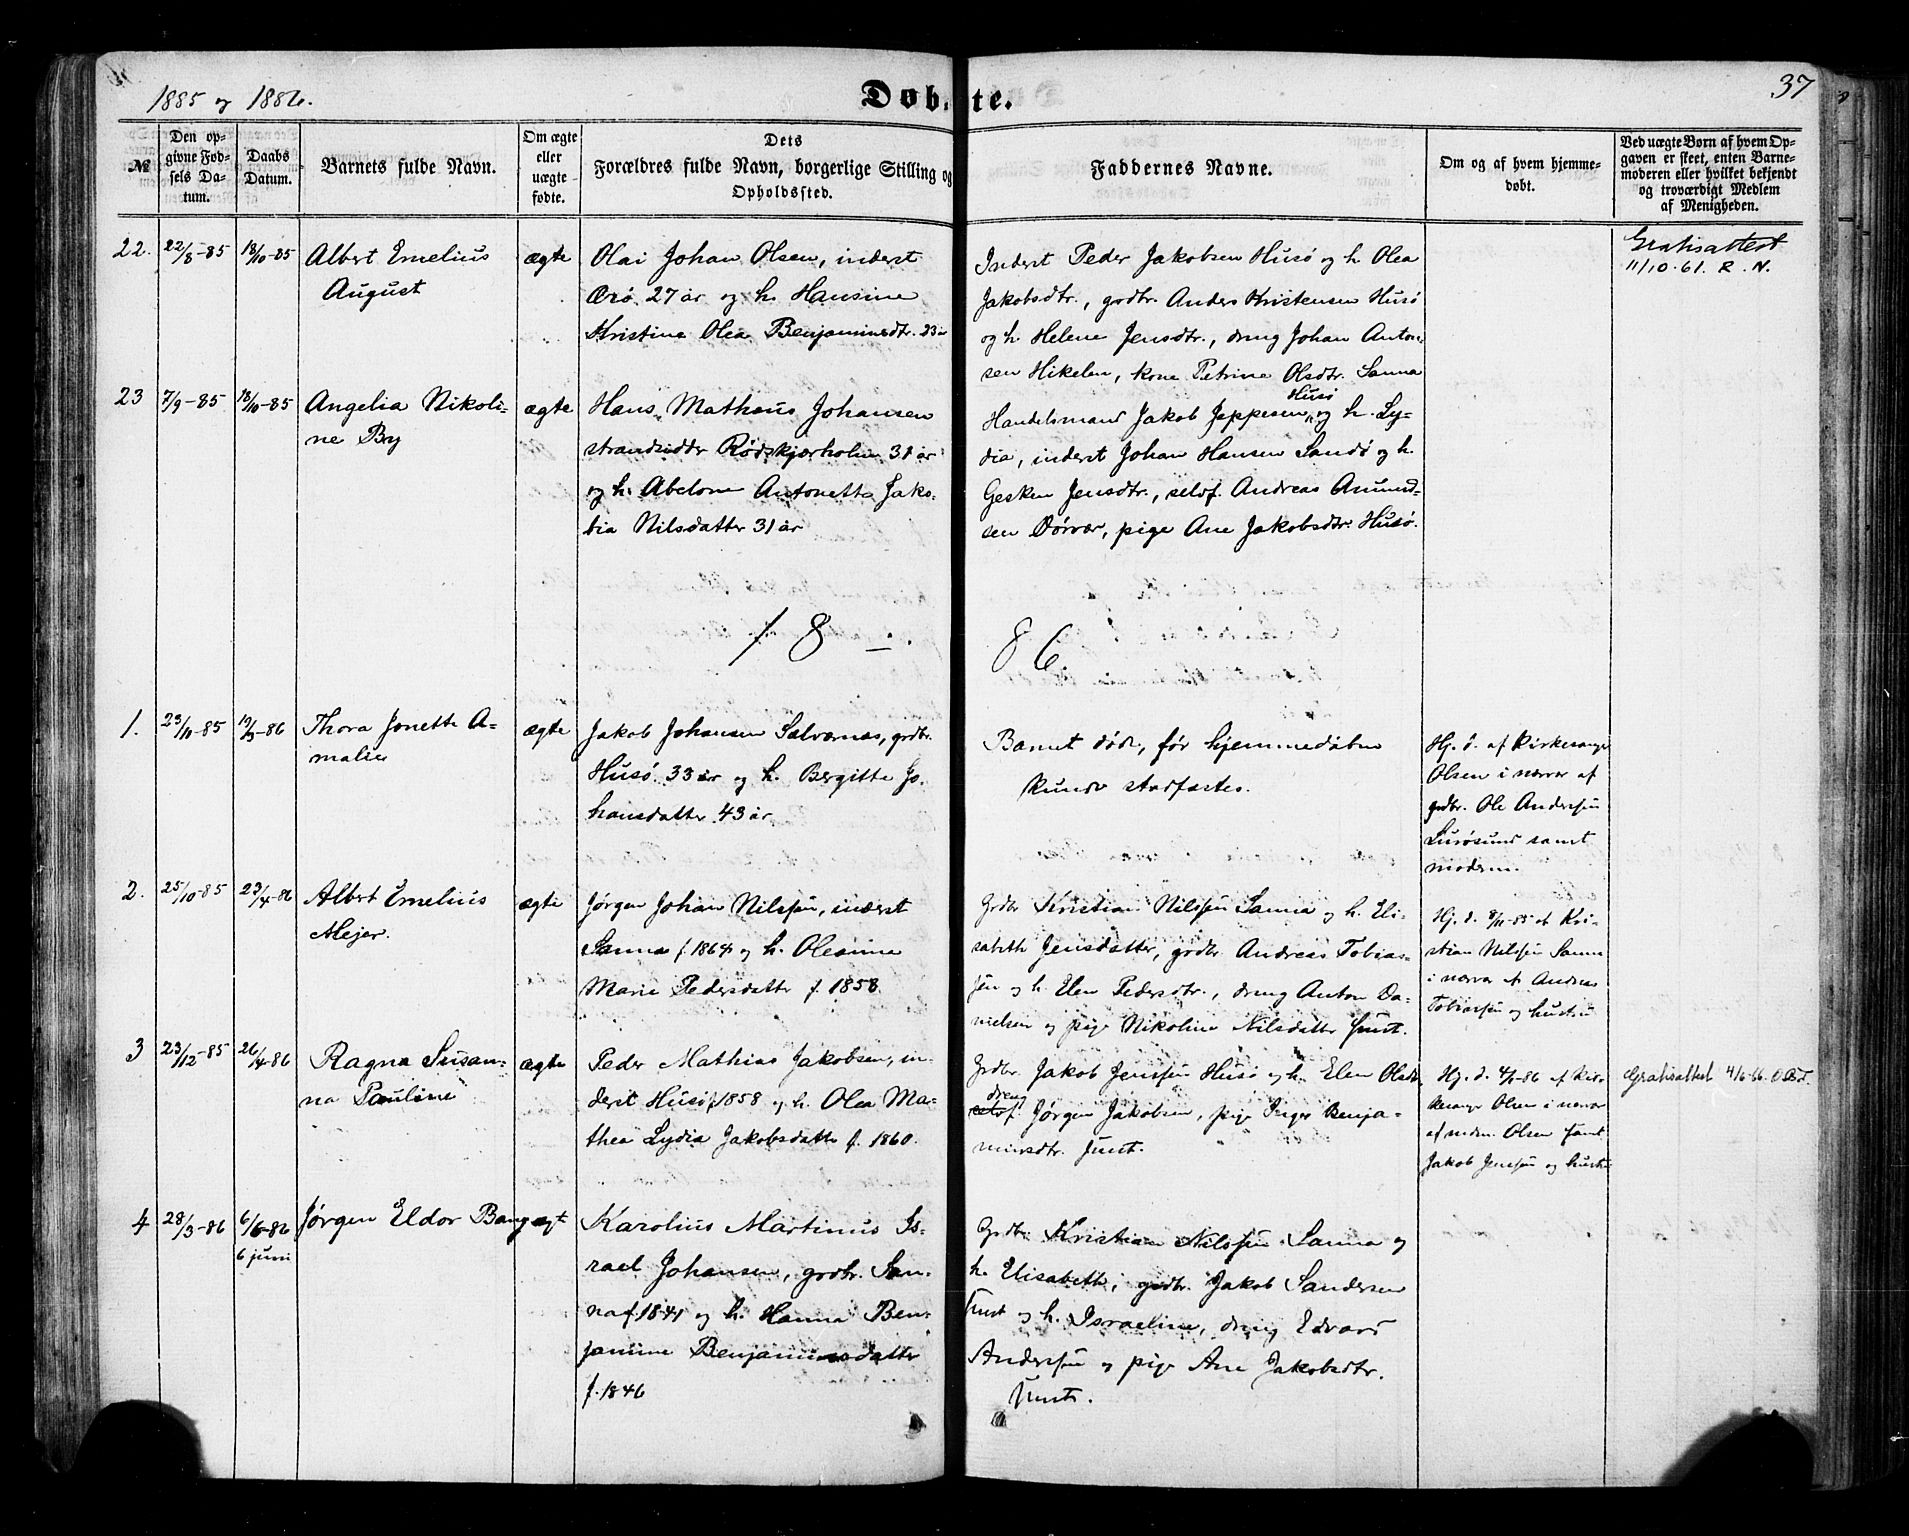 1885 og 1886.
Døbte.
37
№
Den op-
givne Fød-
sels Da-
tum.
Daabs
Datum.
Barnets fulde Navn.
Om ægte
eller
uægte
fødte.
Dets
Forældres fulde Navn, borgerlige Stilling og
Opholdssted.
Faddernes Navne.
Om og af hvem hjemme-
døbt.
Ved uægte Børn af hvem Op-
gaven er skeet, enten Barne-
moderen eller hvilket bekjendt
og troværdigt Medlem
af Menigheden.
22. 22/8-85 18/10-85
Albert Emelius
August
ægte
Olai Johan Olsen, inderst
27 år og h. Hansine
Kristine Olea Benjaminsdtr. 23 år
Inderst Peder Jakobsen Husø og h. Olea
Jakobsdtr., grdbr. Anders Kristensen Husø
og h. Helene Jensdtr., dreng Johan Anton-
sen Hikelen, kone Petrine Olsdtr. Sanna
Gratisattest
11/10.61. R.N.
23 7/9-85 18/10-85
Angelia Nikoli-
ne By
ægte
Hans Mathæus Johansen
strandsidder Rødskjærholm 31 år
og h. Abelone Antonette Jako-
bia Nilsdatter 31 år
Husø
Handelsmand Jakob Jeppesen og h. Ly-
dia, inderst Johan Hansen Sandø og h.
Gesken Jensdtr., selvf. Andreas Amund-
sen Dørvær, pige Ane Jakobsdtr. Husø.
18 86.
1. 23/11-85 19/3-86
Thora Jonette A-
malie
ægte
Jakob Johansen Selvornas, grdbr.
Husø 33 år og h. Bergitte Jo-
hansdatter 43 år
Barnet døde, før hjemmedåben
kunde stadfæstes.
Hj. d. af Kirkesanger
Olsen i nærvær af
grdbr. Ole Anderssen
Lurøsund samt
moderen.
2. 25/10-85 23/4-86
Albert Emelius
Mejer.
ægte
Jørgen Johan Nilssen, inderst
Sanna f. 1864 og h. Oleanna
Marie Pedersdatter f. 1858.
Grdbr Kristian Nilssen Sanna og h. Eli-
sabeth Jensdatter, grdbr. Andreas Tobias-
sen og h. Elen Pedersdtr., dreng Anton Da-
nielsen og pige Nikoline Nilsdatter smst.
Hj. d. 8/11-85 af Kri-
stian Nilssen Sanna
i nærvær af Andreas
Tobiassen og hustru
3 23/12-85 26/4-86
Ragna Susan-
na Pauline
ægte
Peder Mathias Jakobsen, in-
derst Husø f. 1858 og h. Olea Ma-
thea Lydia Jakobsdatter f. 1860.
Grdbr. Jakob Jenssen Husø og h. Elen Olsdtr,
dreng
selvf. Jørgen Jakobsen, pige Inger Benja-
minsdtr. smst.
Hj. d. 4/1-86 af Kir-
kesanger Olsen i nærvær
af mdm. Olsen samt
Jakob Jenssen og hustru
Gratisattest 4/6-66. OBJ.
4 28/3-86 6/6-86
6 juni
Jørgen Eldor Bang
ægte
Karolius Martinus Is-
rael Johansen, grdbr. San-
na f. 1841 og h. Hanna Ben-
jamine Benjaminsdatter
f. 1846
Grdbr Kristian Nilssen Sanna og
h. Elisabeth, grdbr. Jakob Sandersen
smst og h. Israeline, dreng Edvard
Anderssen og pige Ane Jakobsdtr.
smst.